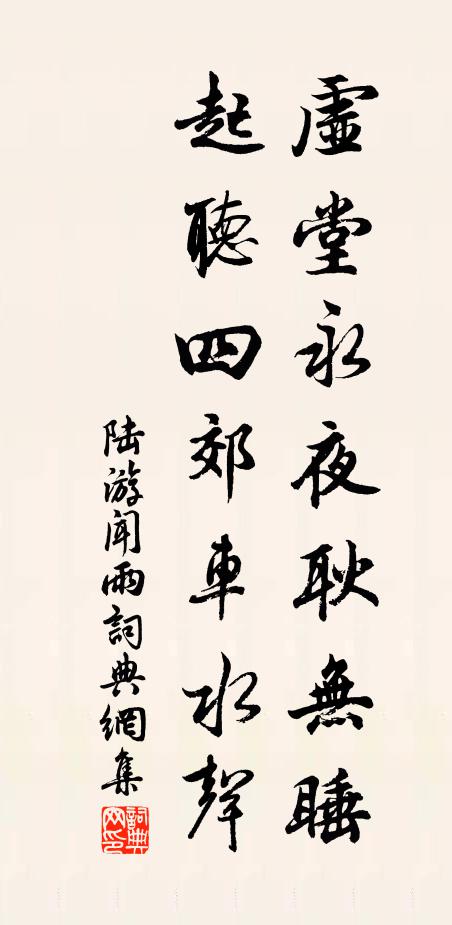 虛堂永夜耿無睡
起聽四郊車水聲
陸游聞雨詞典網集
詞典网印